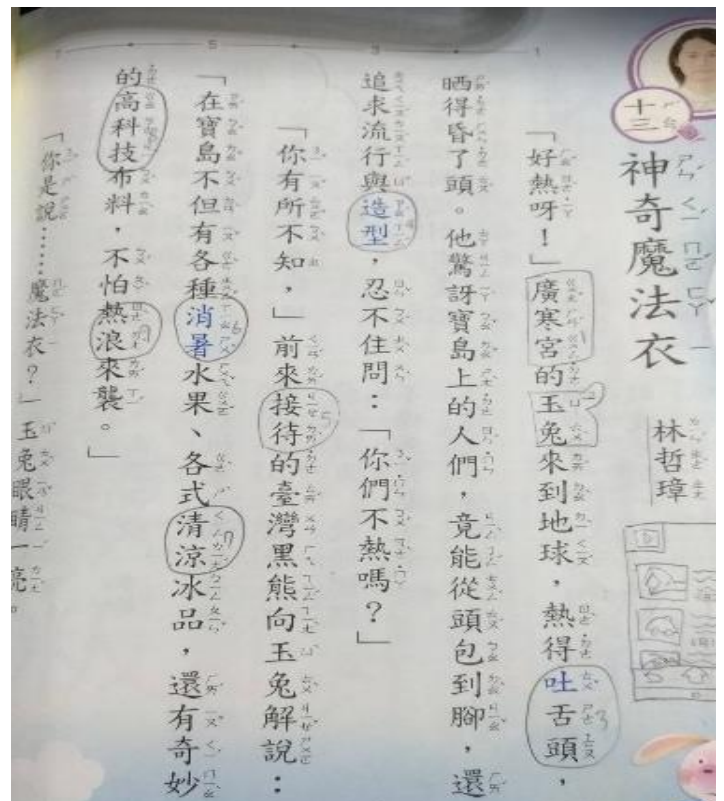 十三
神奇魔法衣
林哲瑋
「好熱呀！」廣寒宮的玉兔來到地球，熱得吐舌頭，
晒得昏了頭。他驚訝寶島上的人們，竟能從頭包到腳，還
追求流行與造型，忍不住問：「你們不熱嗎？」
「你有所不知，」前來接待的臺灣黑熊向玉兔解說：
「在寶島不但有各種消暑水果、各式清涼冰品，還有奇妙
的高科技布料，不怕熱浪來襲。」
「你是說……魔法衣？」玉兔眼睛一亮。